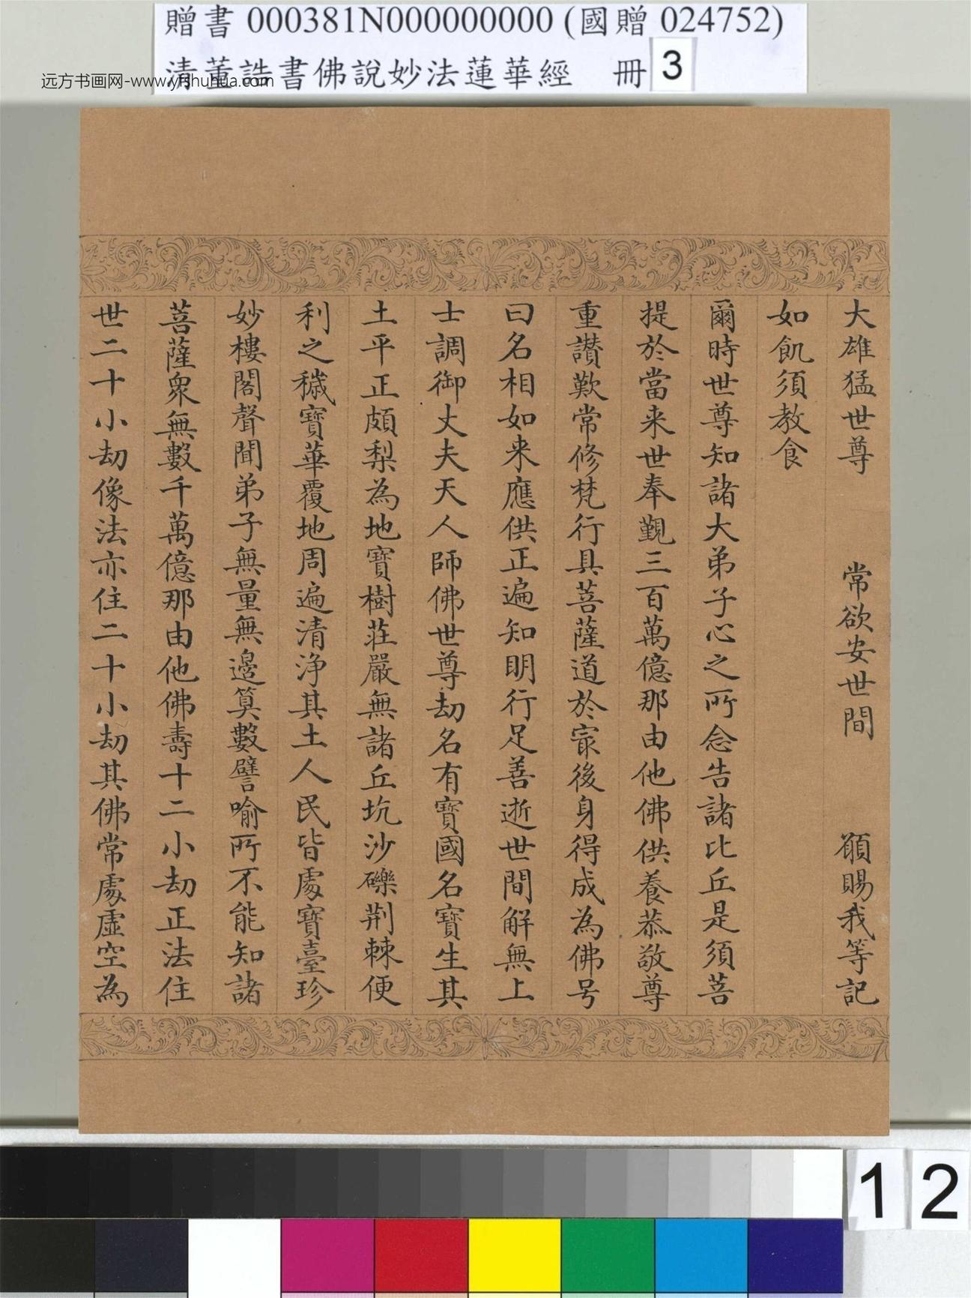 贈書 000381N000000000 (國贈 024752)
清董誥書佛說妙法蓮華經 冊 3
远方书画网-www.yfshuhua.com
大雄猛世尊 常欲安世間 願賜我等記
如飢須教食
爾時世尊知諸大弟子心之所念告諸比丘是須菩
提於當来世奉覲三百萬億那由他佛供養恭敬尊
重讃歎常修梵行具菩薩道於㝡後身得成為佛号
曰名相如来應供正遍知明行足善逝世間解無上
士調御丈夫天人師佛世尊劫名有寶國名寶生其
土平正頗梨為地寶樹莊嚴無諸丘坑沙礫荆棘便
利之穢寶華覆地周遍清淨其土人民皆處寶臺珍
妙樓閣聲聞弟子無量無邊算數譬喻所不能知諸
菩薩衆無數千萬億那由他佛壽十二小劫正法住
世二十小劫像法亦住二十小劫其佛常處虛空為
12